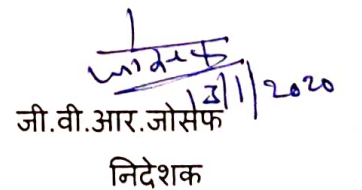 13/1/2020
जी.वी.आर.जोसेफ
निदेशक